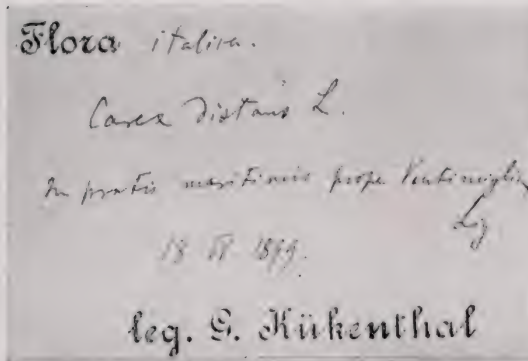 Flora italica.
Carex distans L.
In pratis maritimis prope Ventimiglia
Lig.
18 1899.
leg. G. Kükenthal